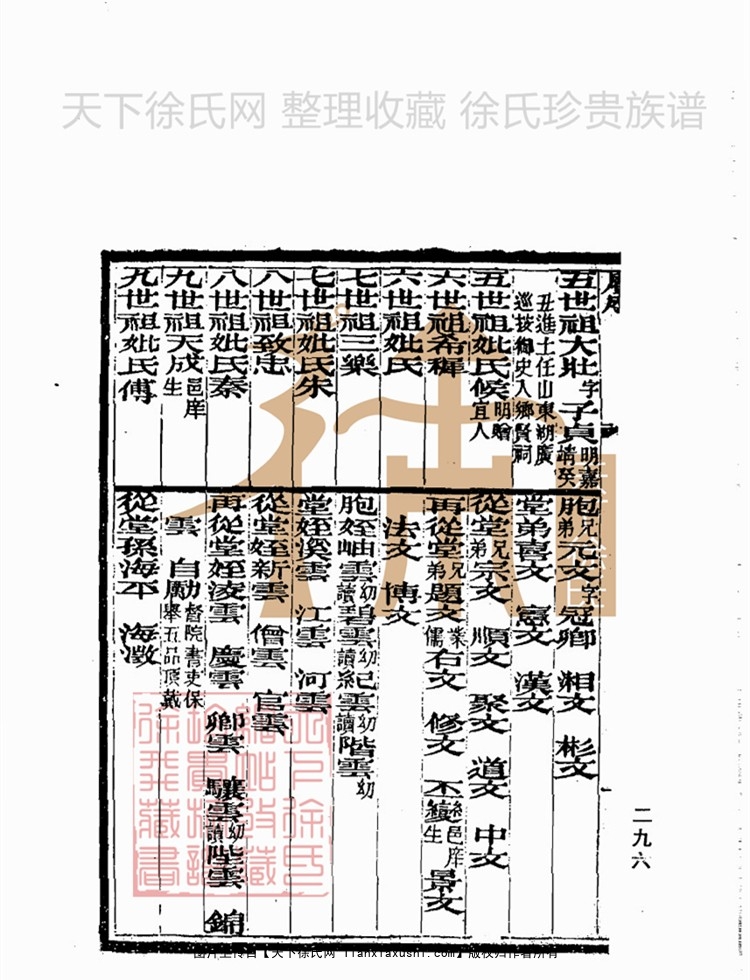 天下徐氏网 整理收藏 徐氏珍贵族谱
五世祖大壯字子貞明嘉靖癸
丑進士任山東湖廣
巡按御史入鄉賢祠
五世祖妣氏侯明贈宜人
六世祖希稺
六世祖妣氏
七世祖三樂
七世祖妣氏朱
八世祖致忠
八世祖妣氏秦
九世祖天成邑庠生
九世祖妣氏傅
胞兄弟元文字冠卿 湘文 彬文
堂弟喜文 憲文 漢文
從堂兄弟宗文 順文 聚文 道文 中文
再從堂兄弟題文業儒右文 修文 丕變邑庠生 景文
法文 博文
胞姪岫雲幼讀碧雲幼讀紀雲幼讀階雲幼
堂姪溪雲 江雲 河雲
從堂姪新雲 僧雲 官雲
再從堂姪淩雲 慶雲 卿雲 驤雲幼讀陞雲 錦
雲 自勛督院書吏保舉五品頂戴
從堂孫海平 海澂
二九六
图片上传自【天下徐氏网 tianxiaxushi.com】版权归作者所有